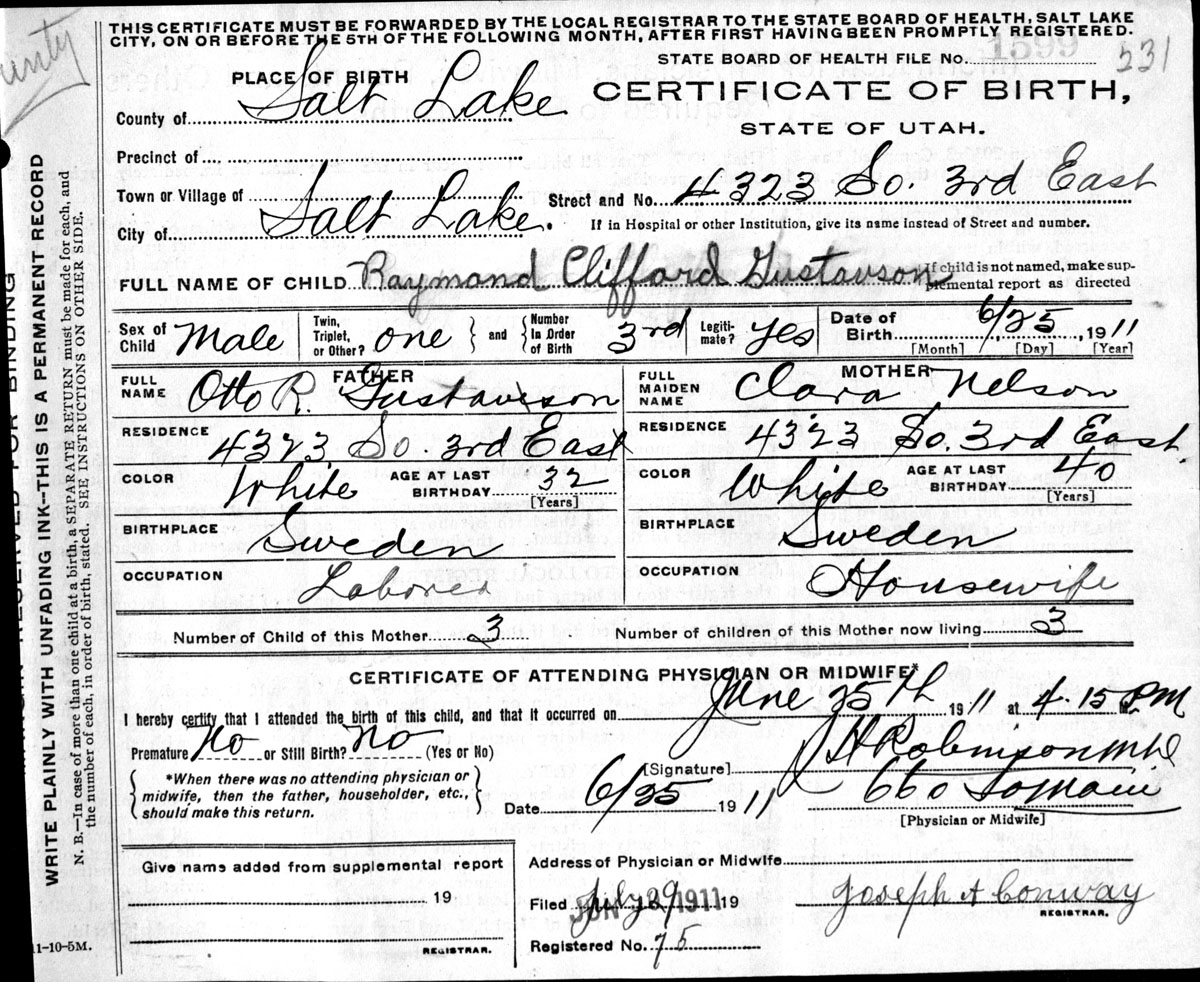 unty
THIS CERTIFICATE MUST BE FORWARDED BY THE LOCAL REGISTRAR TO THE STATE BOARD OF HEALTH, SALT LAKE
CITY, ON OR BEFORE THE 5TH OF THE FOLLOWING MONTH, AFTER FIRST HAVING BEEN PROMPTLY REGISTERED.
1599
STATE BOARD OF HEALTH FILE No. 531
PLACE OF BIRTH
CERTIFICATE OF BIRTH,
STATE OF UTAH.
County of Salt Lake
Precinct of
Town or Village of
Street and No. 4323 So. 3rd East
City of Salt Lake.
If in Hospital or other Institution, give its name instead of Street and number.
FULL NAME OF CHILD Raymond Clifford Gustavson
If child is not named, make supplemental report as directed
Sex of Child Male
Twin, Triplet, or Other? one
and Number In Order of Birth 3rd
Legitimate? yes
Date of Birth 6/25, 1911
[Month] [Day] [Year]
FATHER
FULL NAME Otto R. Gustaveson
RESIDENCE 4323 So. 3rd East
COLOR White AGE AT LAST BIRTHDAY 32 [Years]
BIRTHPLACE Sweden
OCCUPATION Laborer
MOTHER
FULL MAIDEN NAME Clara Nelson
RESIDENCE 4323 So. 3rd East
COLOR White AGE AT LAST BIRTHDAY 40 [Years]
BIRTHPLACE Sweden
OCCUPATION Housewife
Number of Child of this Mother 3 Number of children of this Mother now living 3
CERTIFICATE OF ATTENDING PHYSICIAN OR MIDWIFE*
I hereby certify that I attended the birth of this child, and that it occurred on June 25th 1911 at 4.15 P.M
Premature No or Still Birth? No (Yes or No)
*When there was no attending physician or
midwife, then the father, householder, etc.,
should make this return.
[Signature] Robinson M.D
Date 6/25 1911 660 So Main
[Physician or Midwife]
Give name added from supplemental report
19
REGISTRAR.
Address of Physician or Midwife
Filed July 29 1911 19 Joseph A Conway
REGISTRAR.
Registered No. 75
11-10-5M.
MARGIN RESERVED FOR BINDING
WRITE PLAINLY WITH UNFADING INK--THIS IS A PERMANENT RECORD
N. B.—In case of more than one child at a birth, a SEPARATE RETURN must be made for each, and
the number of each, in order of birth, stated. SEE INSTRUCTIONS ON OTHER SIDE.